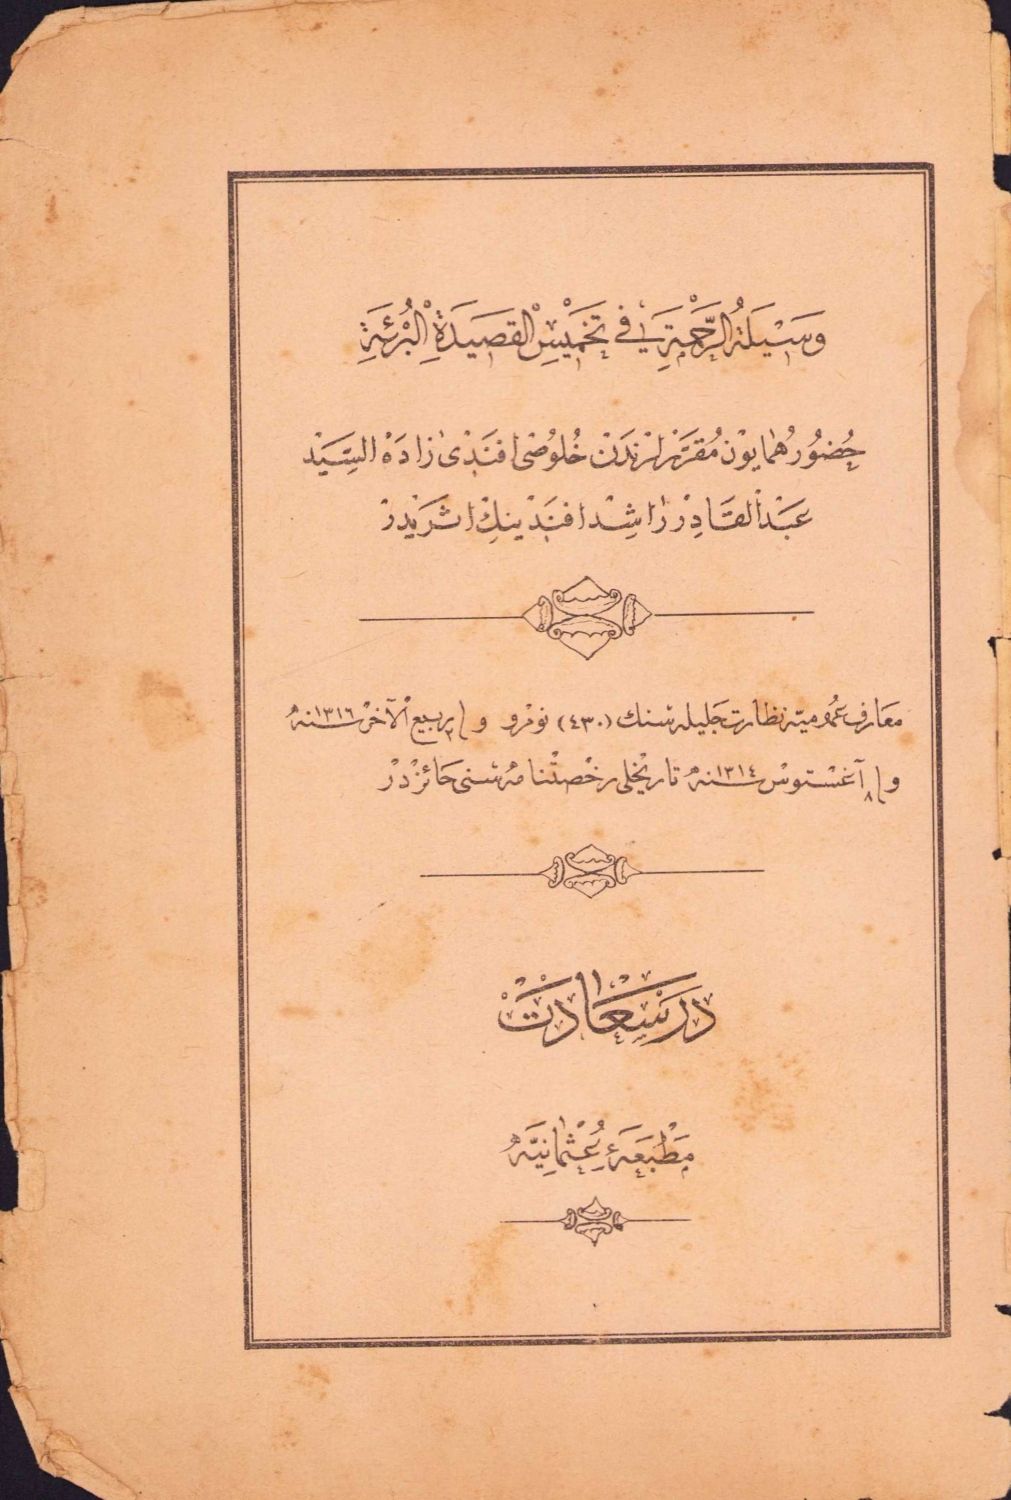 وَسِيلَةُ الرَّحْمَةِ فِي تَخْمِيسِ الْقَصِيدَةِ الْبُرْئَةِ
حُضُورُ هُمَايُون مُقَرَّرْلَرِنْدَنْ خُلُوصِى افَنْدِى زَادَهْ السَّيِّدْ
عَبْدُ الْقَادِرْ رَاشِدْ افَنْدِينِكْ اَثَرِيدِرْ
معارف عموميه نظارت جليله سنك (٤٣٠) نومرو و ربيع الآخر سنه ١٣١٦
و ٨ آغستوس سنه ١٣١٤ تاريخلى رخصتنامه سنى حائزدر
دَرْسَعَادَتْ
مَطْبَعَهءِ عُثْمَانِيَّه